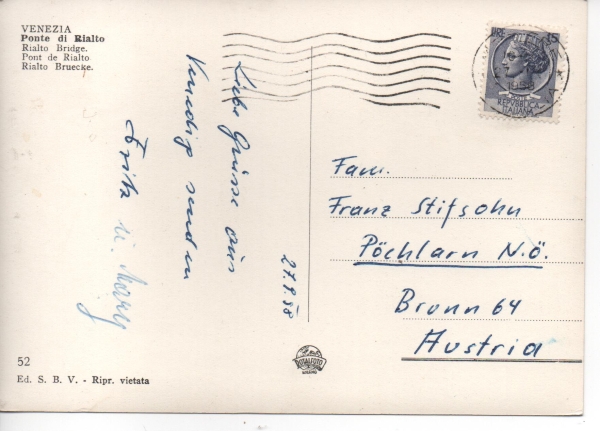 VENEZIA
Ponte di Rialto
Rialto Bridge.
Pont de Rialto
Rialto Bruecke.
Liebe Grüsse aus
Venedig senden
Fritz u.
27.9.58
LIRE 15
1958
REPVBBLICA
ITALIANA
Fam.
Franz Stifsohn
Pöchlarn N.Ö.
Brunn 64
Austria
52
Ed. S. B. V. - Ripr. vietata
ROTALFOTO